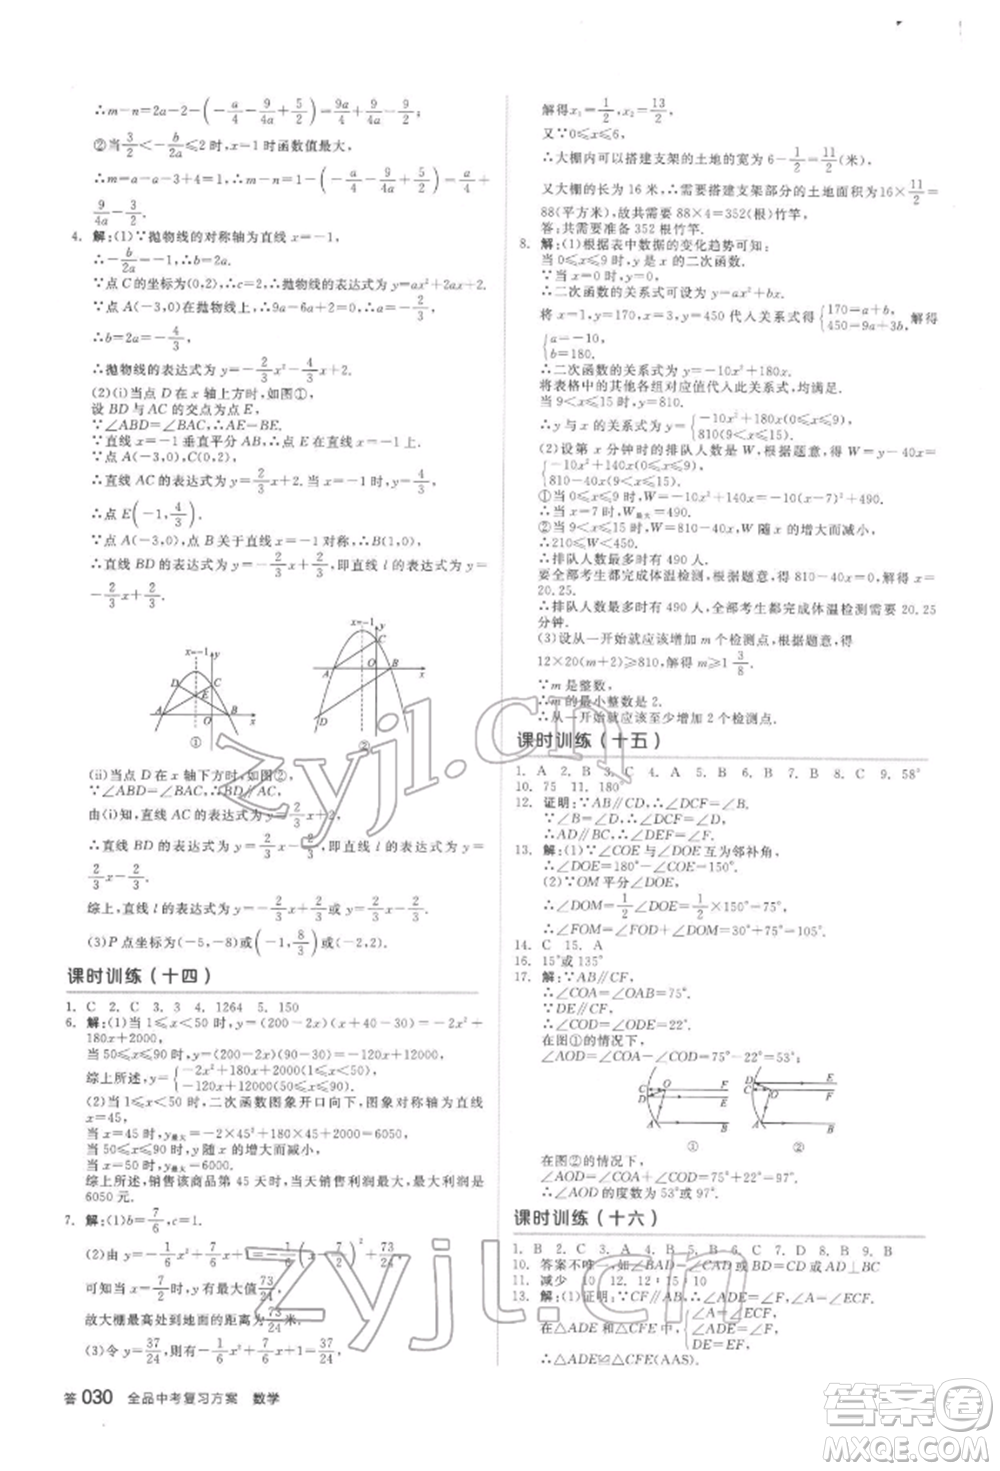 ∴m−n=2a−2−(−a/4−9/4a+5/2)=9a/4+9/4a−9/2.
②当3/2<−b/2a≤2时,x=1时函数值最大,
∴m−n=a−a−3+4−1−(−a/4−9/4a+5/2)=a/4+
9/4a−3/2.
4. 解:(1)∵抛物线的对称轴为直线x=−1,
∴−b/2a=−1,∴b=2a.
∵点C的坐标为(0,2),∴抛物线的表达式为y=ax²+2ax+2.
∵点A(−3,0)在抛物线上,∴9a−6a+2=0,∴a=−2/3,
∴b=2a=−4/3,
∴抛物线的表达式为y=−2/3x²−4/3x+2.
(2)(i)当点D在x轴上方时,如图①,
设BD与AC的交点为点E,
∵∠ABD=∠BAC,∴AE=BE.
∵直线x=−1垂直平分AB,∴点E在直线x=−1上.
∵点A(−3,0),C(0,2),
∴直线AC的表达式为y=2/3x+2.当x=−1时,y=4/3,
∴点E(−1,4/3).
∵点A(−3,0),点B关于直线x=−1对称,∴B(1,0),
∴直线BD的表达式为y=−2/3x+2/3,即直线l的表达式为y=
−2/3x+2/3.
x=−1 y C D E A O B x
①
x=−1 y C A O B x D
②
(ii)当点D在x轴下方时,如图②,
∵∠ABD=∠BAC,∴BD∥AC,
由(i)知,直线AC的表达式为y=2/3x+2,
∴直线BD的表达式为y=2/3x−2/3,即直线l的表达式为y=
2/3x−2/3.
综上,直线l的表达式为y=−2/3x+2/3或y=2/3x−2/3.
(3)P点坐标为(−5,−8)或(−1,8/3).
课时训练(十四)
1. C 2. C 3. 3 4. 1264 5. 150
6. 解:(1)当1≤x<50时,y=(200−2x)(x+40−30)=−2x²+
180x+2000,
当50≤x≤90时,y=(200−2x)(90−30)=−120x+12000,
综上所述,y={−2x²+180x+2000(1≤x<50),
−120x+12000(50≤x≤90).
(2)当1≤x<50时,二次函数图象开口向下,图象对称轴为直线
x=45,
当x=45时,y最大=−2×45²+180×45+2000=6050,
当50≤x≤90时,y随x的增大而减小,
当x=50时,y最大=6000.
综上所述,销售该商品第45天时,当天销售利润最大,最大利润是
6050元.
7. 解:(1)b=7/6,c=1.
故大棚最高处到地面的距离为73/24米.
(3)令y=37/24,则有−1/6x²+7/6x+1=37/24,
答030 全品中考复习方案 数学
解得x₁=1/2,x₂=13/2.
又∵0≤x≤6,
∴大棚内可以搭建支架的土地的宽为6−1/2=11/2(米),
又大棚的长为16米,∴需要搭建支架部分的土地面积为16×11/2=
88(平方米),故共需要88×4=352(根)竹竿.
答:共需要准备352根竹竿.
8. 解:(1)根据表中数据的变化趋势可知:
当0≤x≤9时,y是x的二次函数.
∵当x=0时,y=0,
∴二次函数的关系式可设为y=ax²+bx.
将x=1,y=170,x=3,y=450代入关系式{170=a+b,
450=9a+3b,解得
{a=−10,
b=180.
∴二次函数的关系式为y=−10x²+180x,
将表格中的其他各组对应值代入此关系式,均满足.
当9<x≤15时,y=810.
∴y与x的关系式为y={−10x²+180x(0≤x≤9),
810(9<x≤15).
(2)设第x分钟时的排队人数是W,根据题意,得W=y−40x=
{−10x²+140x(0≤x≤9),
810−40x(9<x≤15).
①当0≤x≤9时,W=−10x²+140x=−10(x−7)²+490,
∴当x=7时,W最大=490.
②当9<x≤15时,W=810−40x,W随x的增大而减小,
∴210≤W<450.
∴排队人数最多时有490人.
要全部考生都完成体温检测,根据题意,得810−40x=0,解得x=
20.25.
∴排队人数最多时有490人,全部考生都完成体温检测需要20.25
分钟.
(3)设从一开始就应该增加m个检测点,根据题意,得
12×20(m+2)≥810,解得m≥1 3/8.
∵m是整数,
∴m的最小整数是2.
∴从一开始就应该至少增加2个检测点.
课时训练(十五)
1. A 2. B 3. B 4. A 5. B 6. B 7. B 8. C 9. 58°
10. 75 11. 180°
12. 证明:∵AB∥CD,∴∠DCF=∠B.
∵∠B=∠D,∴∠DCF=∠D,
∴AD∥BC,∴∠DEF=∠F.
13. 解:(1)∵∠COE与∠DOE互为邻补角,
∴∠DOE=180°−∠COE=150°.
(2)∵OM平分∠DOE,
∴∠DOM=1/2∠DOE=1/2×150°=75°,
∴∠FOM=∠DOF+∠DOM=30°+75°=105°.
14. C 15. A
16. 15°或135°
17. 解:∵AB∥CF,
∴∠COA=∠OAB=75°.
∵DE∥CF,
∴∠COD=∠ODE=22°.
在图①的情况下,
∠AOD=∠COA−∠COD=75°−22°=53°.
D E C O F A B
①
D E C O F A B
②
在图②的情况下,
∠AOD=∠COA+∠COD=75°+22°=97°.
∴∠AOD的度数为53°或97°.
课时训练(十六)
1. B 2. C 3. A 4. C 5. B 6. B 7. D 8. B 9. B
10. 答案不唯一,如∠BAD=∠CAD或BD=CD或AD⊥BC
11. 减少 10 12. 12:15:10
13. 解:(1)证明:∵CF∥AB,∴∠ADE=∠F.
在△ADE和△CFE中,
∴△ADE≌△CFE(AAS).
zyjl.cn
zyjl.cn
答案圈
MXQE.COM